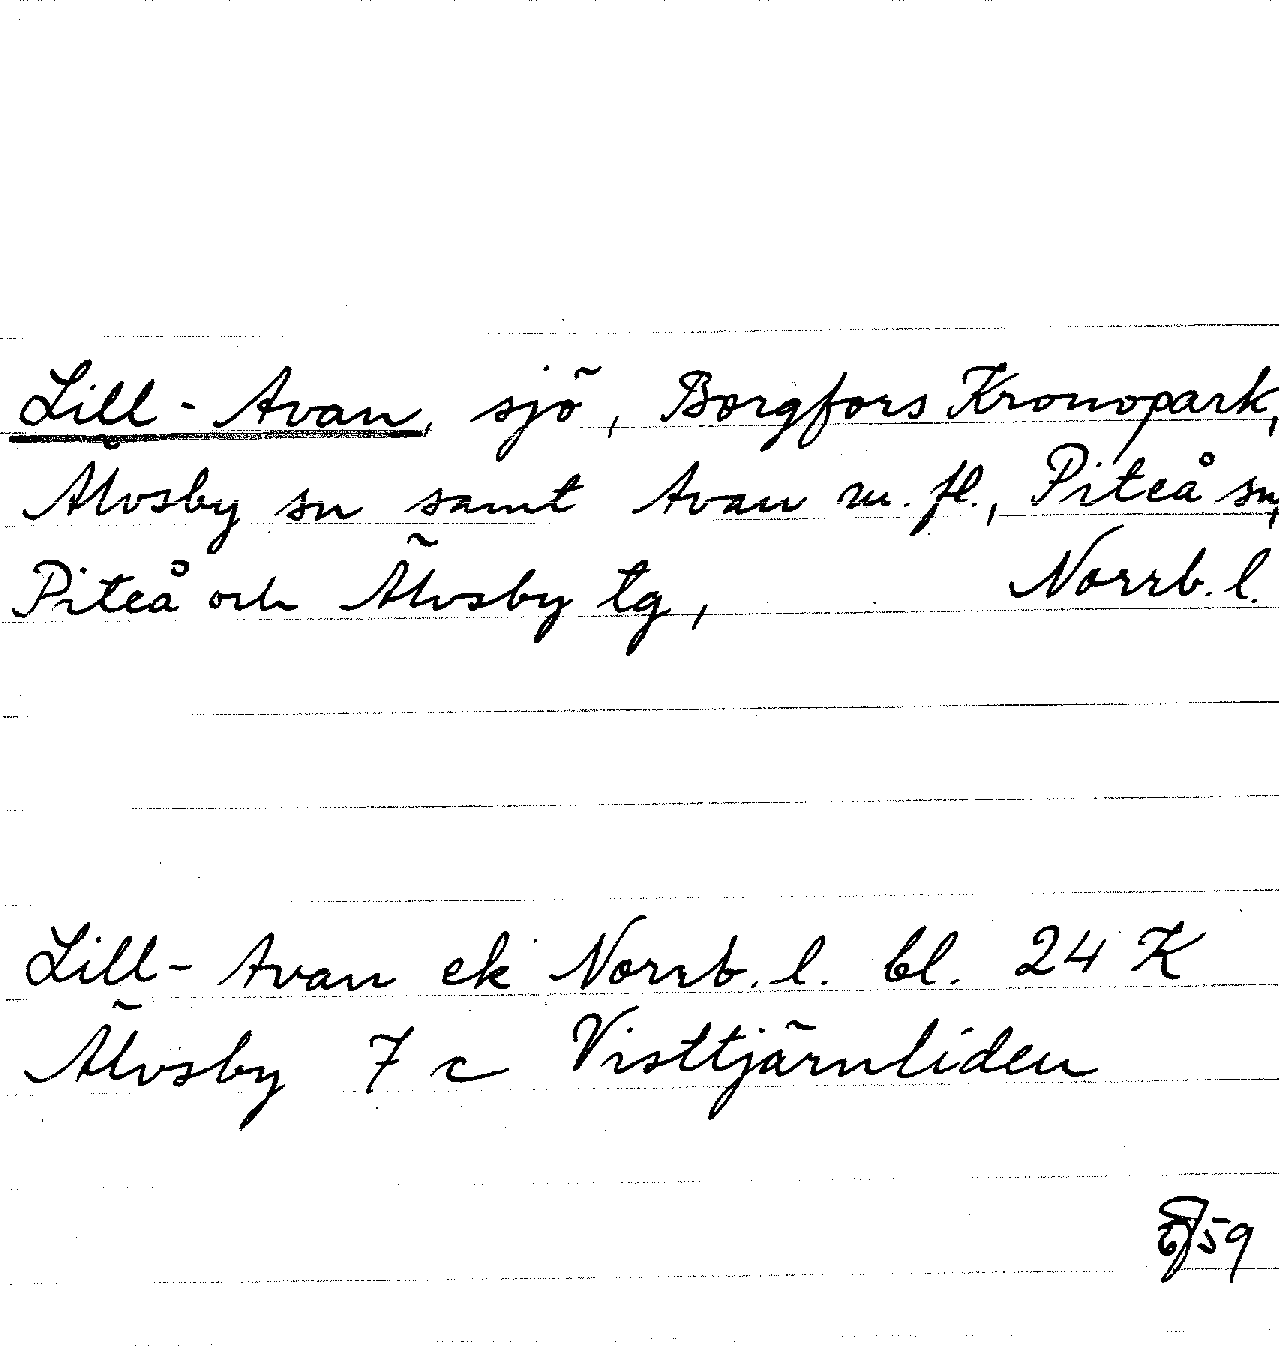 Lill-Avan, sjö, Borgfors Kronopark,
Älvsby sn samt Avan m. fl., Piteå sn,
Piteå och Älvsby tg, Norrb. l.
Lill-Avan ek Norrb. l. bl. 24 K
Älvsby 7 c Visttjärnliden
59